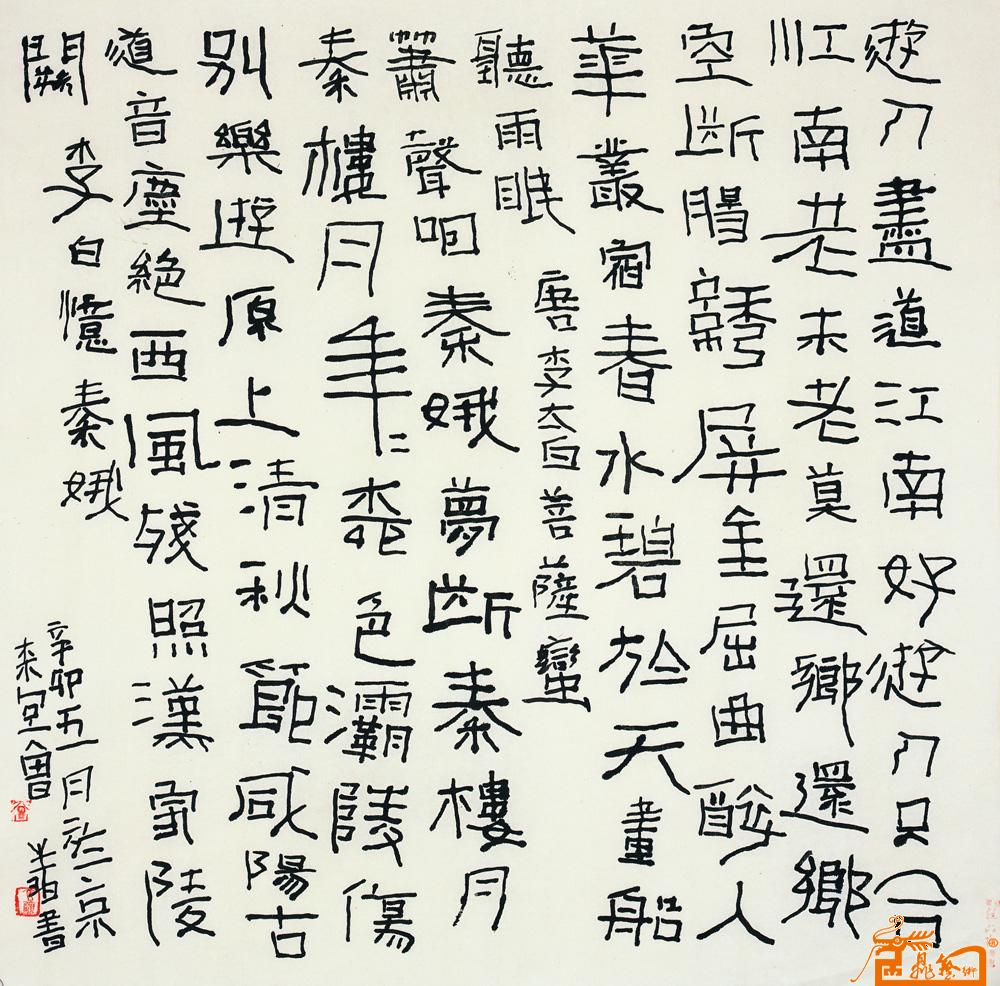 遊人盡道江南好遊人只合
江南老未老莫還鄉還鄉
空斷腸誘屏金屈曲醉入
華叢宿春水碧於天畫船
聽雨眠
唐李太白菩薩蠻
簫聲咽秦娥夢斷秦樓月
秦樓月年〻柳色灞陵傷
別樂遊原上清秋節咸陽古
道音塵絕西風殘照漢家陵
闕 李白憶秦娥
辛卯五一月於京